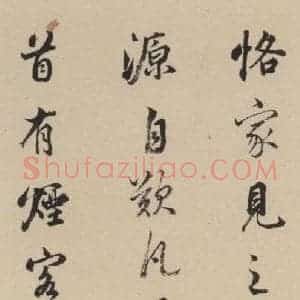 恪家見之
源自歎凡
首有煙客
Shufaziliao.com